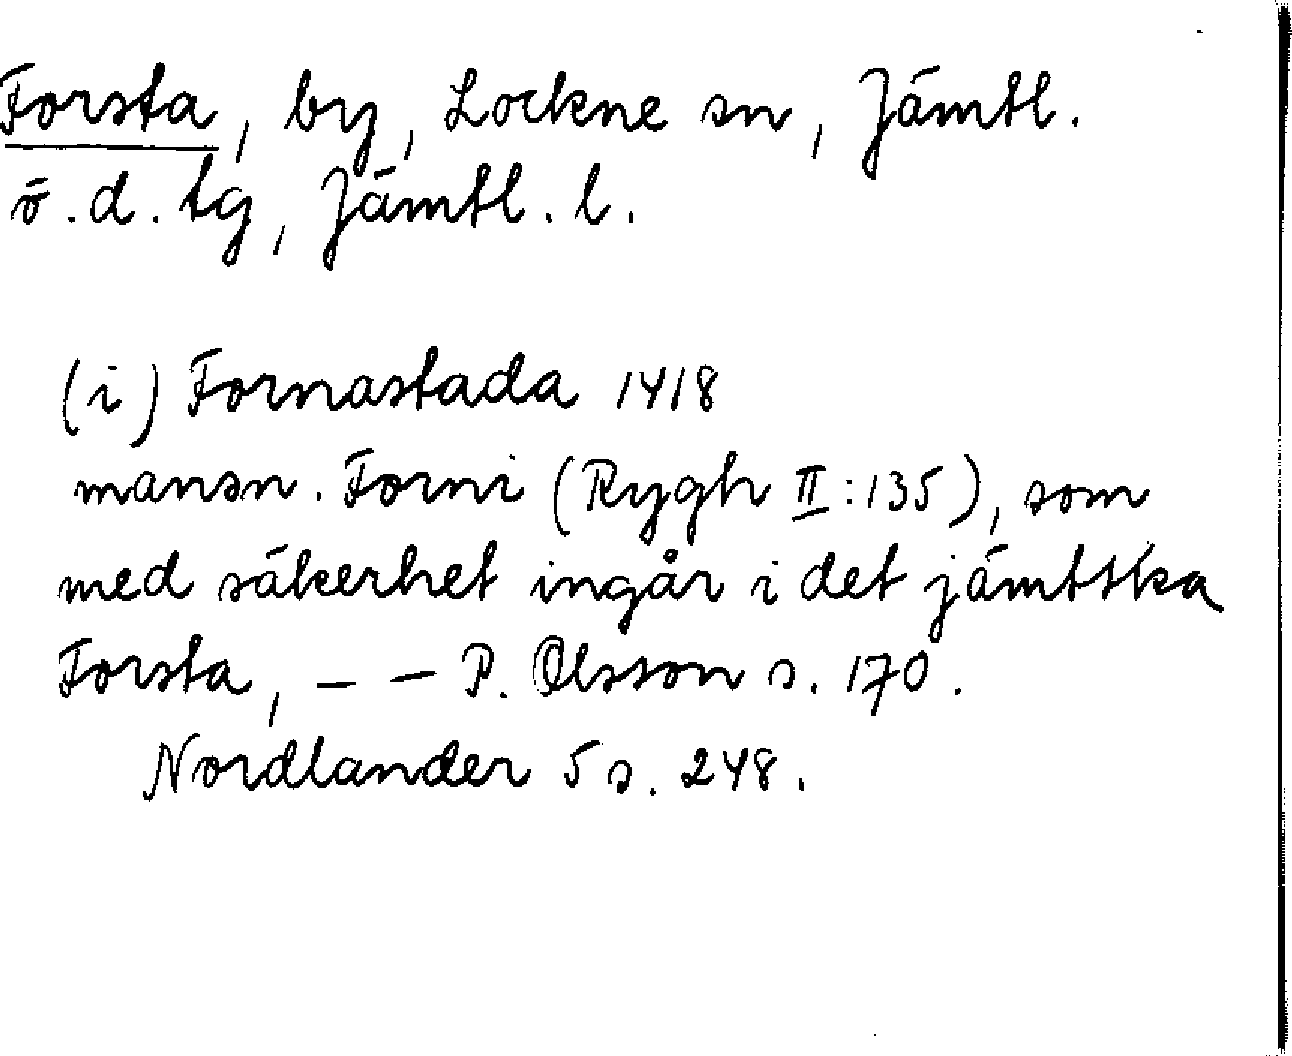 Forsta, by, Lockne sn, Jämtl.
ö.d. tg, Jämtl. l.
(i) Fornastada 1418
mansn. Forni (Rygh II:135), som
med säkerhet ingår i det jämtska
Forsta, — — P. Olsson s. 170.
Nordlander 5 s. 248.